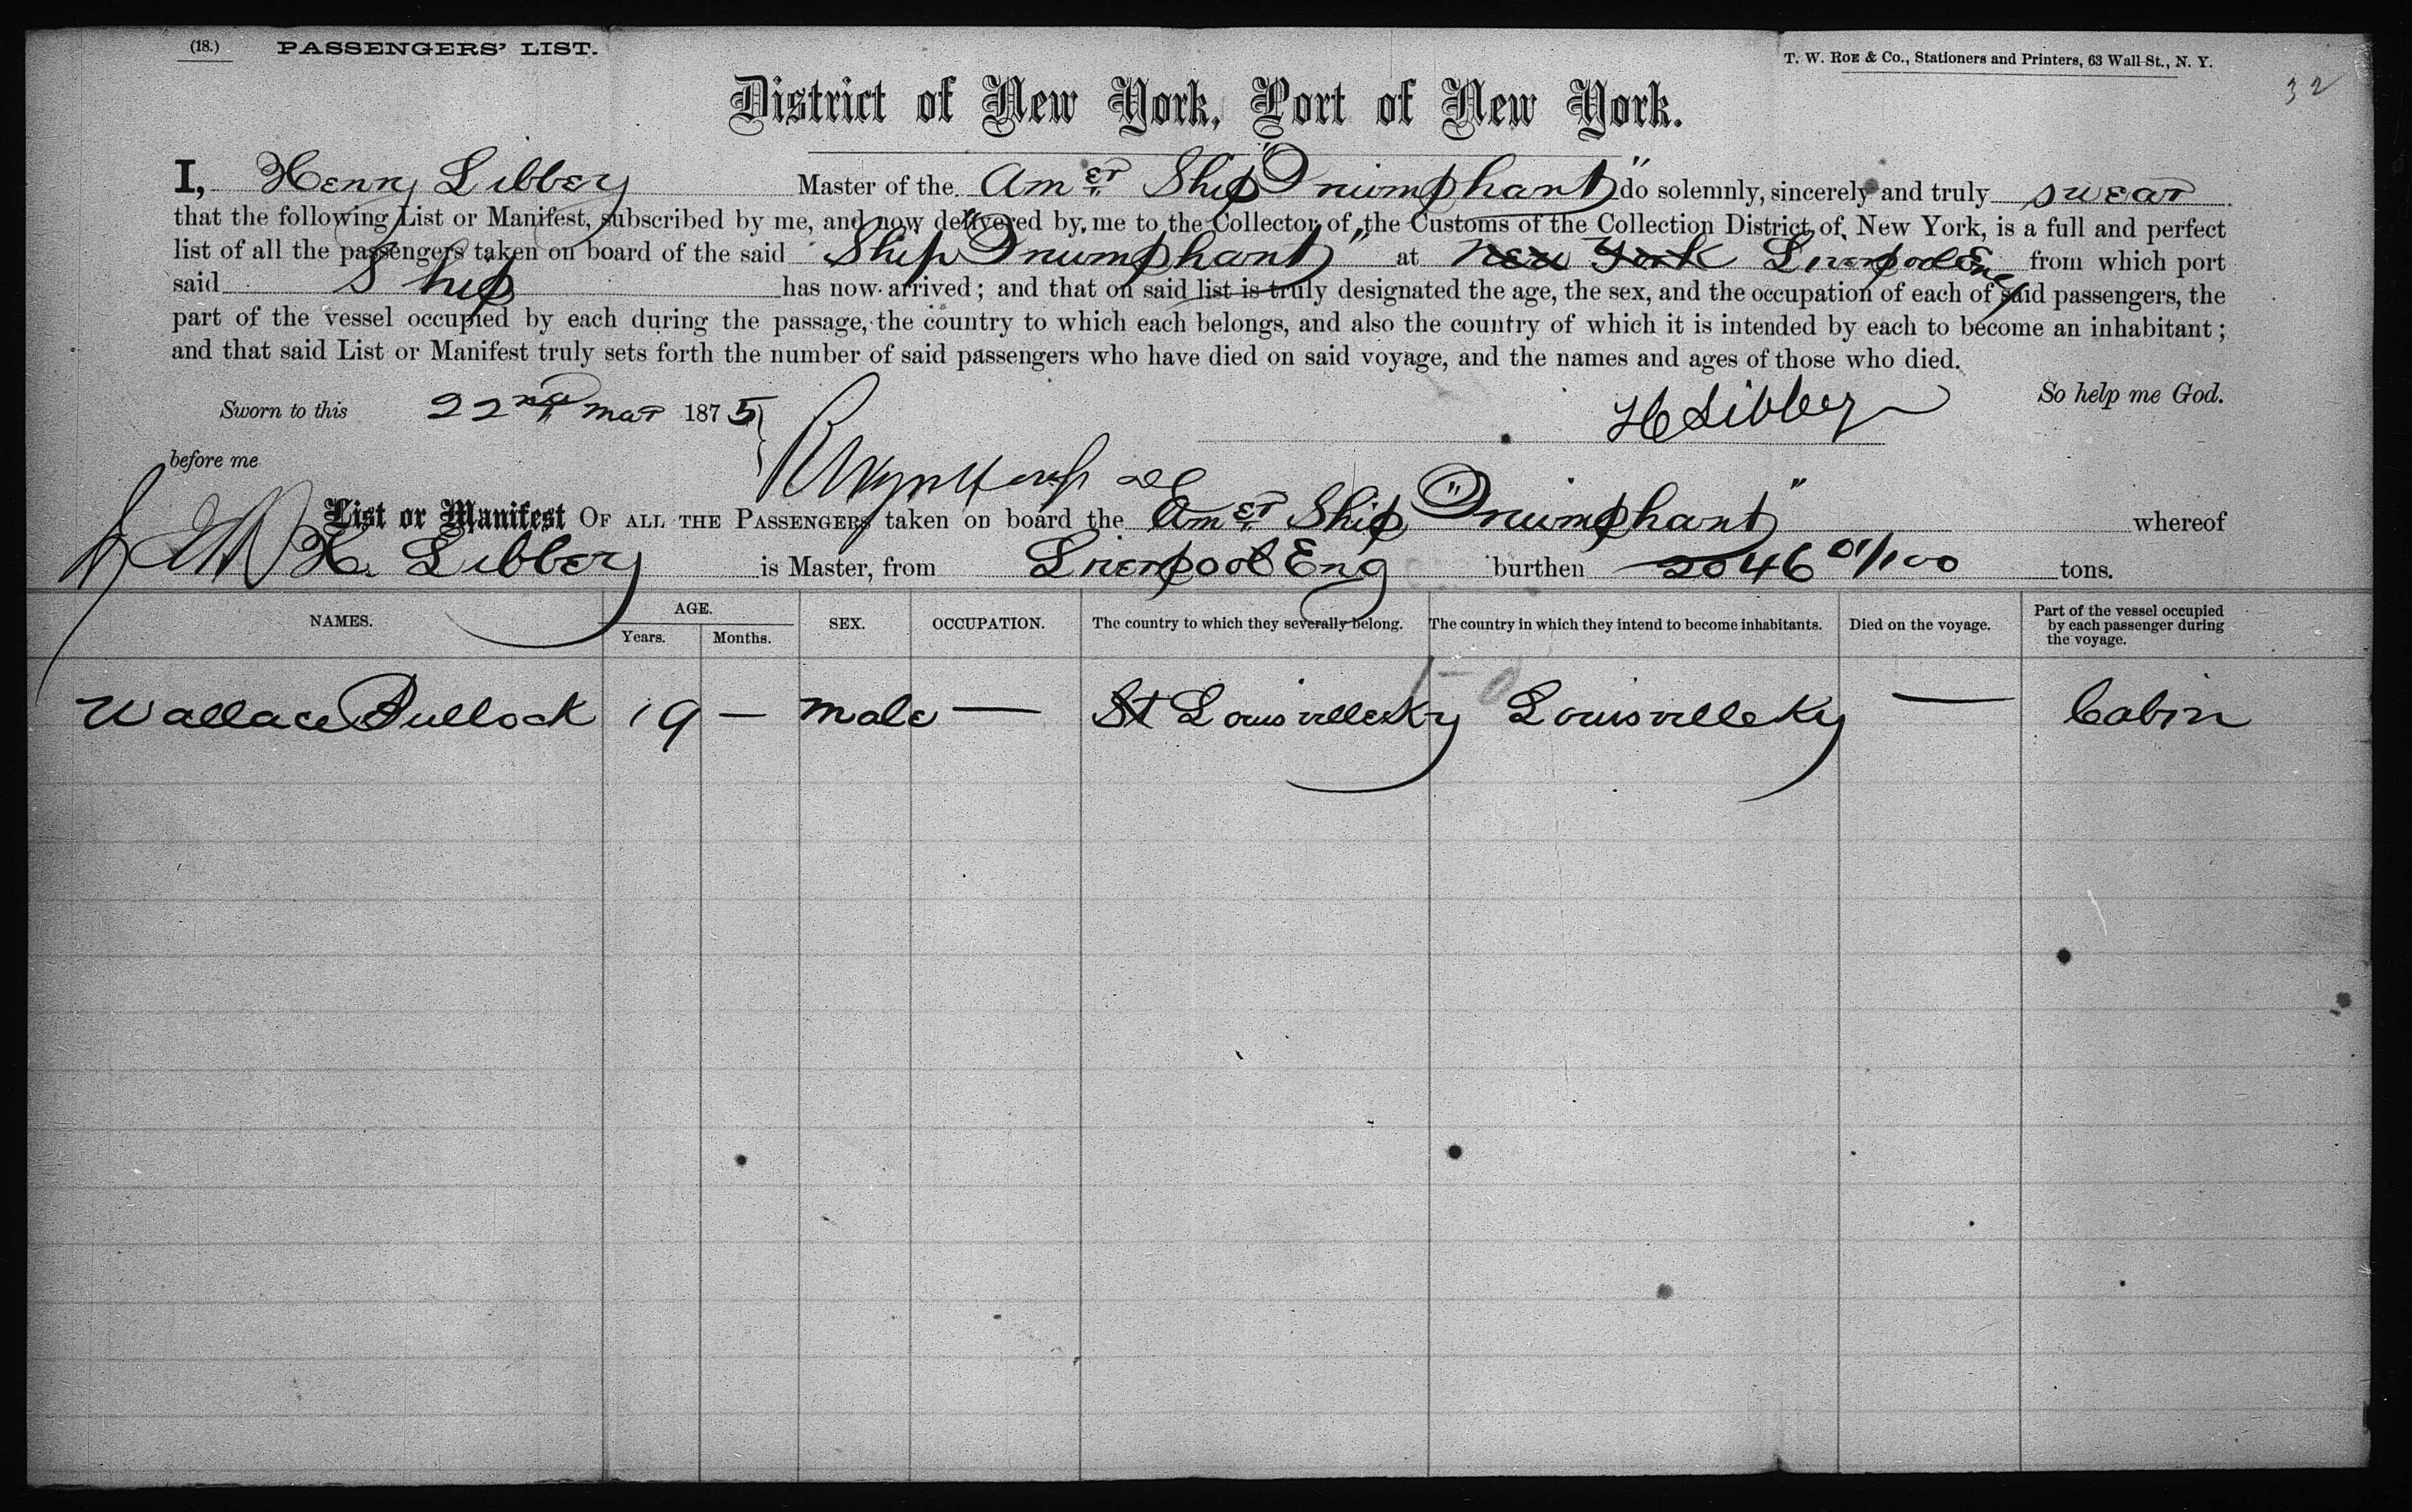 (18.) PASSENGERS' LIST.
T. W. Roe & Co., Stationers and Printers, 63 Wall St., N. Y.
32
District of New York, Port of New York.
I, Henry Libbey Master of the Amer Ship "Triumphant" do solemnly, sincerely and truly swear
that the following List or Manifest, subscribed by me, and now delivered by me to the Collector of the Customs of the Collection District of New York, is a full and perfect
list of all the passengers taken on board of the said Ship "Triumphant" at New York Liverpool Eng from which port
said Ship has now arrived; and that on said list is truly designated the age, the sex, and the occupation of each of said passengers, the
part of the vessel occupied by each during the passage, the country to which each belongs, and also the country of which it is intended by each to become an inhabitant;
and that said List or Manifest truly sets forth the number of said passengers who have died on said voyage, and the names and ages of those who died.
So help me God.
Sworn to this 22nd Mar 1875
H Libbey
before me
List or Manifest OF ALL THE PASSENGERS taken on board the Amer Ship "Triumphant" whereof
H. Libbey is Master, from Liverpool Eng burthen 2046 01/100 tons.
NAMES. AGE. Years. Months. SEX. OCCUPATION. The country to which they severally belong. The country in which they intend to become inhabitants. Died on the voyage. Part of the vessel occupied by each passenger during the voyage.
Wallace Bullock 19 — male — St Louisville Ky Louisville Ky — Cabin